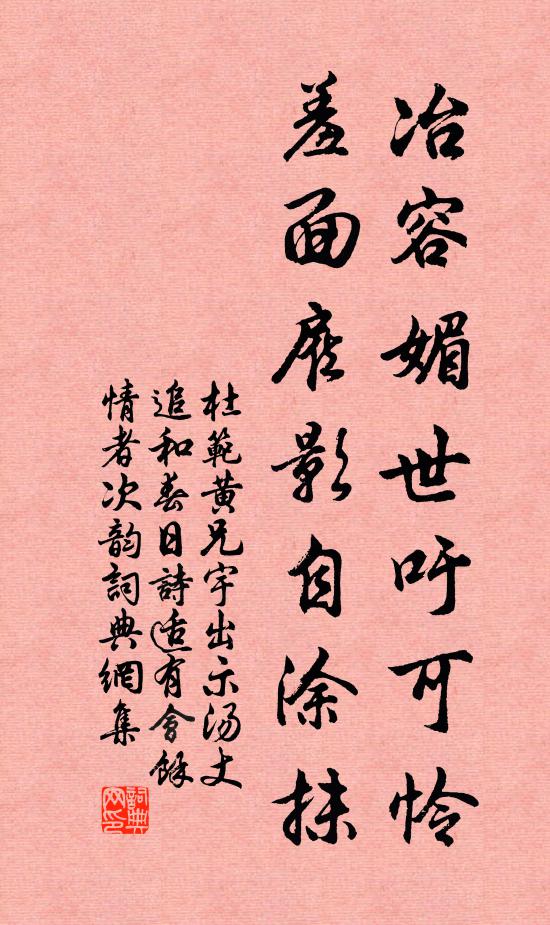 冶容媚世吁可怜
羞面顾影自涂抹
杜範黄兄宇出示汤丈
追和春日詩适有會餘
情者次韵詞典網集
詞典网印